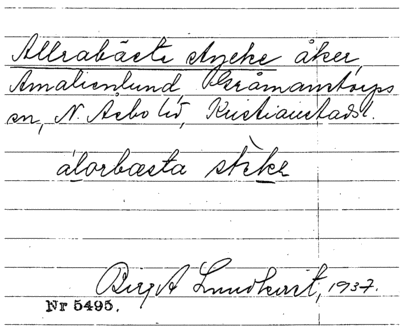 Allrabäste stycke åker,
Amalienlund, Gråmanstorps
sn, N. Åsbo hd, Kristianstads l.
 álorbæsta stèke
Birgit Lundqvist, 1937.
Nr 5495.